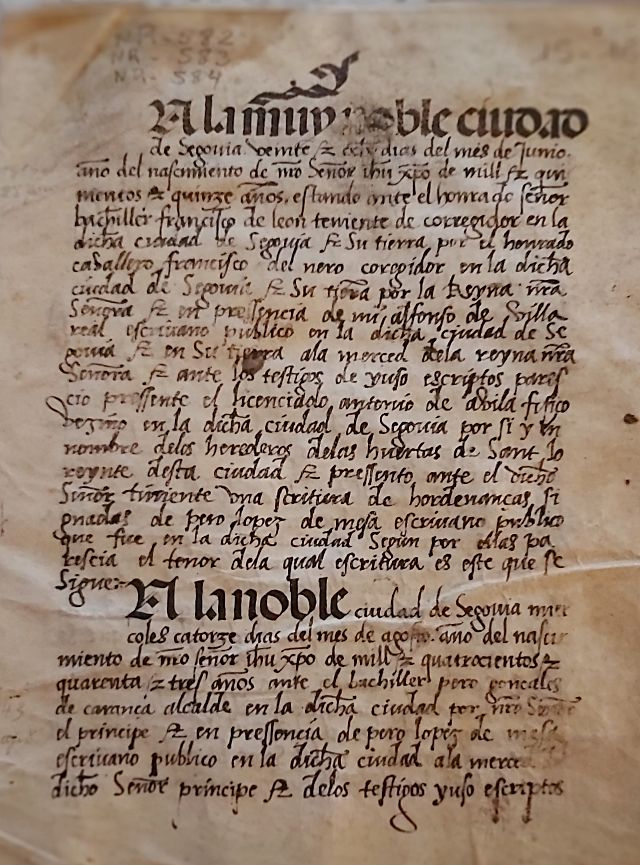 NR - 582
NR - 583
NR - 584
A la muy noble ciudad
de Segovia veinte & dias del mes de Junio
año del nasçimiento de nro Señor ihu xpo de mill & quin
nientos & quinze años, estando ante el honrado señor
bachiller françisco de leon teniente de corregidor en la
dicha ciudad de Segovia & Su tierra por el honrado
caballero françisco del nero coregidor en la dicha
ciudad de Segovia & Su tierra por la Reyna nra
Señora & en pressençia de mi alfonso de villa
real escrivano publico en la dicha ciudad de Se
govia & en Su tierra ala merced dela reyna nra
Señora & ante los testigos de yuso escriptos pares
cio pressente el liçençiado antonio de avila fisico
vezino en la dicha ciudad de Segovia por si y en
nombre delos herederos delas huertas de Sant lo
reynte desta ciudad & pressento ante el dicho
Señor tiniente una scritura de hordenanças si
gnadas de pero lopez de mesa escrivano publico
que fue en la dicha ciudad Segun por ellas pa
rescia el tenor dela qual escritura es este que se
Sigue
A la noble ciudad de Segovia mier
coles catorze dias del mes de agosto año del nasci
miento de nro señor ihu xpo de mill & quatroçientos &
quarenta & tres años ante el bachiller pero gonçales
de caranca alcalde en la dicha ciudad por nro Señor
el prinçipe & en pressençia de pero lopez de mesa
escrivano publico en la dicha ciudad ala merced
dicho Señor prinçipe & delos testigos yuso escriptos